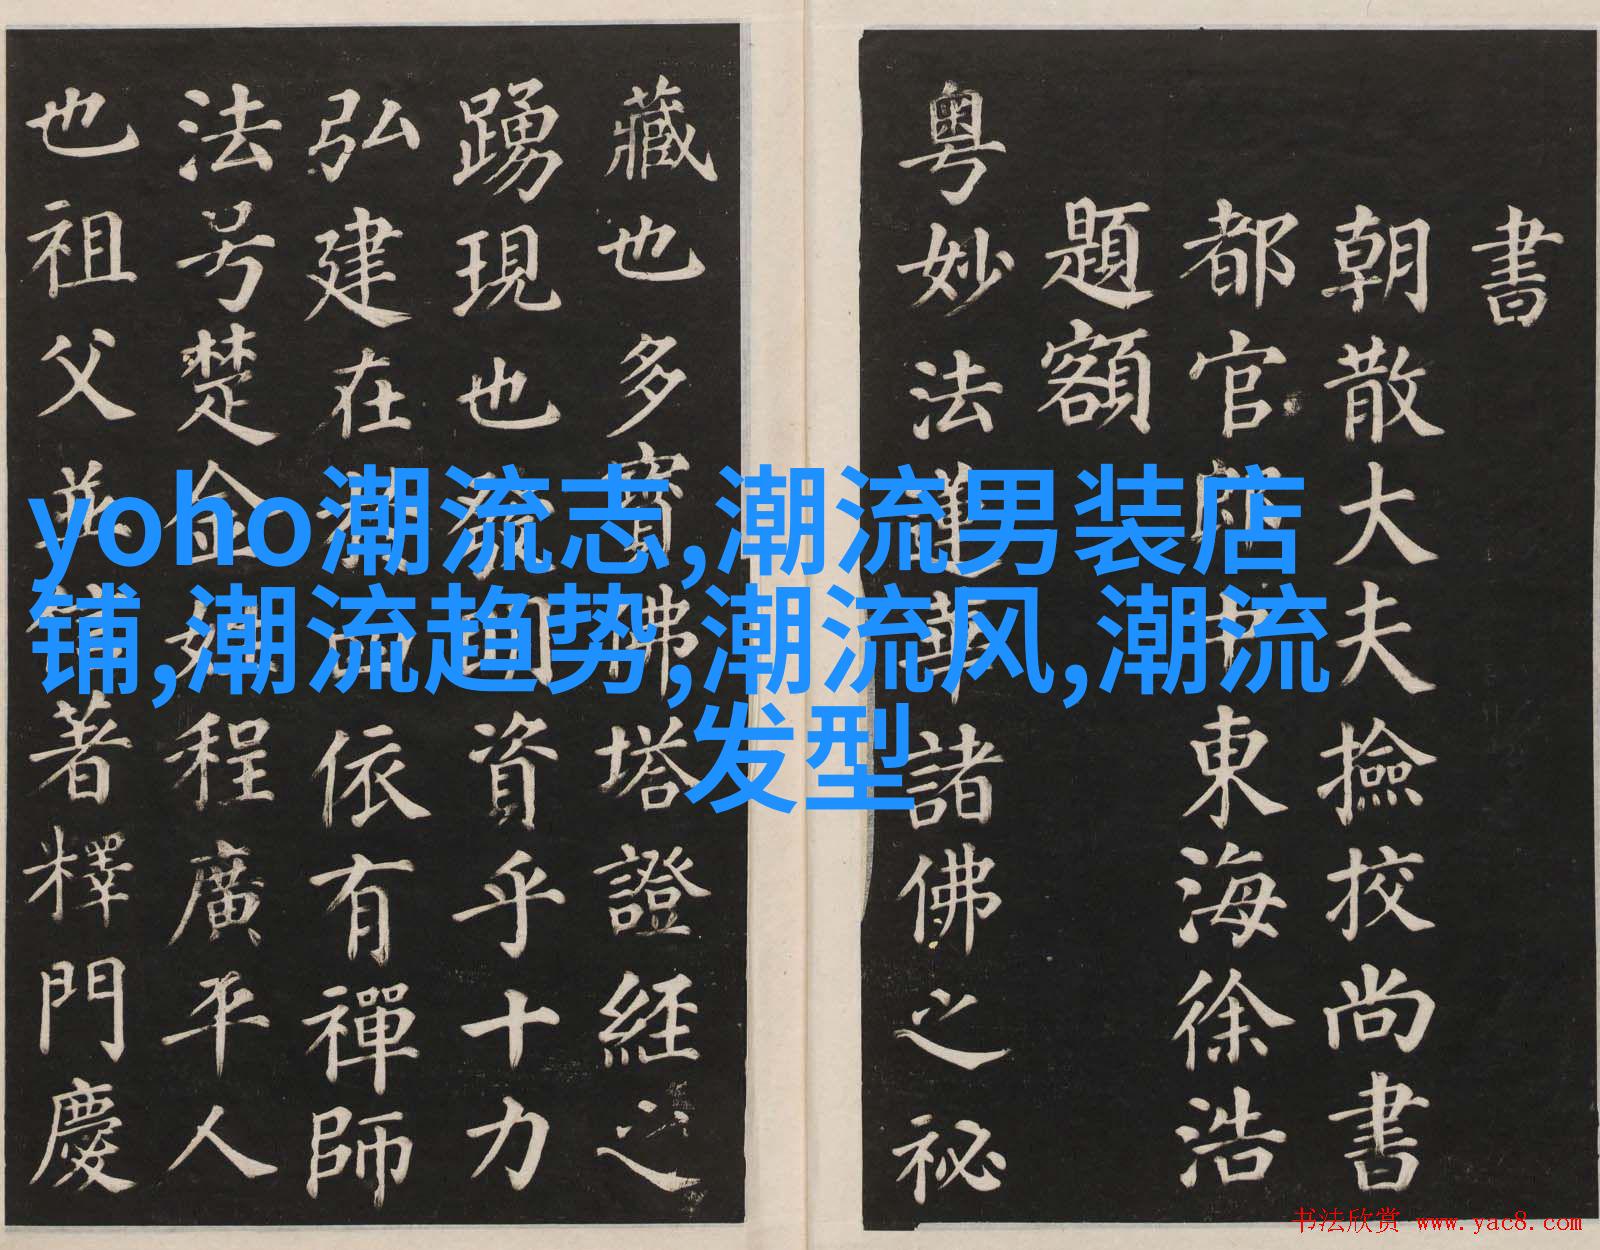 書
朝散大夫撿校尚書
都官郎中東海徐浩
題額
粵妙法蓮華諸佛之祕
藏也多寶佛塔證經之
踴現也發明資乎十力
弘建在於四依有禪師
法号楚金姓程廣平人
也祖父並信著釋門慶
yoho潮流志,潮流男装店
铺,潮流趋势,潮流风,潮流
发型
书法欣赏 www.yac8.com